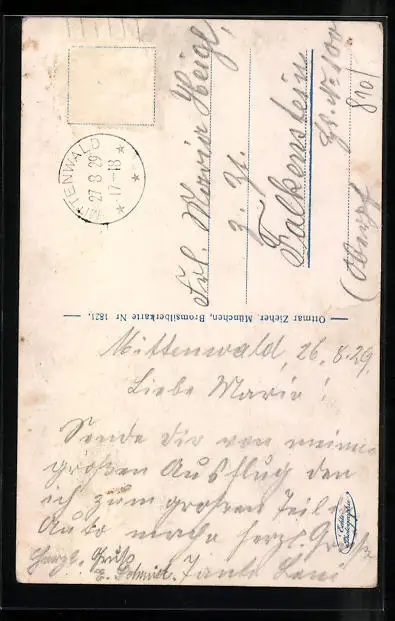 MITTENWALD
27 8 29
17-18
Frl. Maria Heigl,
z. Zt.
Falkenstein
Hs. Nr. 100
810/
Ottmar Zieher, München, Bromsilberkarte Nr 1821.
Mittenwald, 26.8.29.
Liebe Marie!
Sende dir von meinem
großen Ausflug den
ich zum großen Teile
Auto mache herzl. Grüße
Tante Leni
Herzl. Gruß
E. Schmidt.
Echte
Photographie